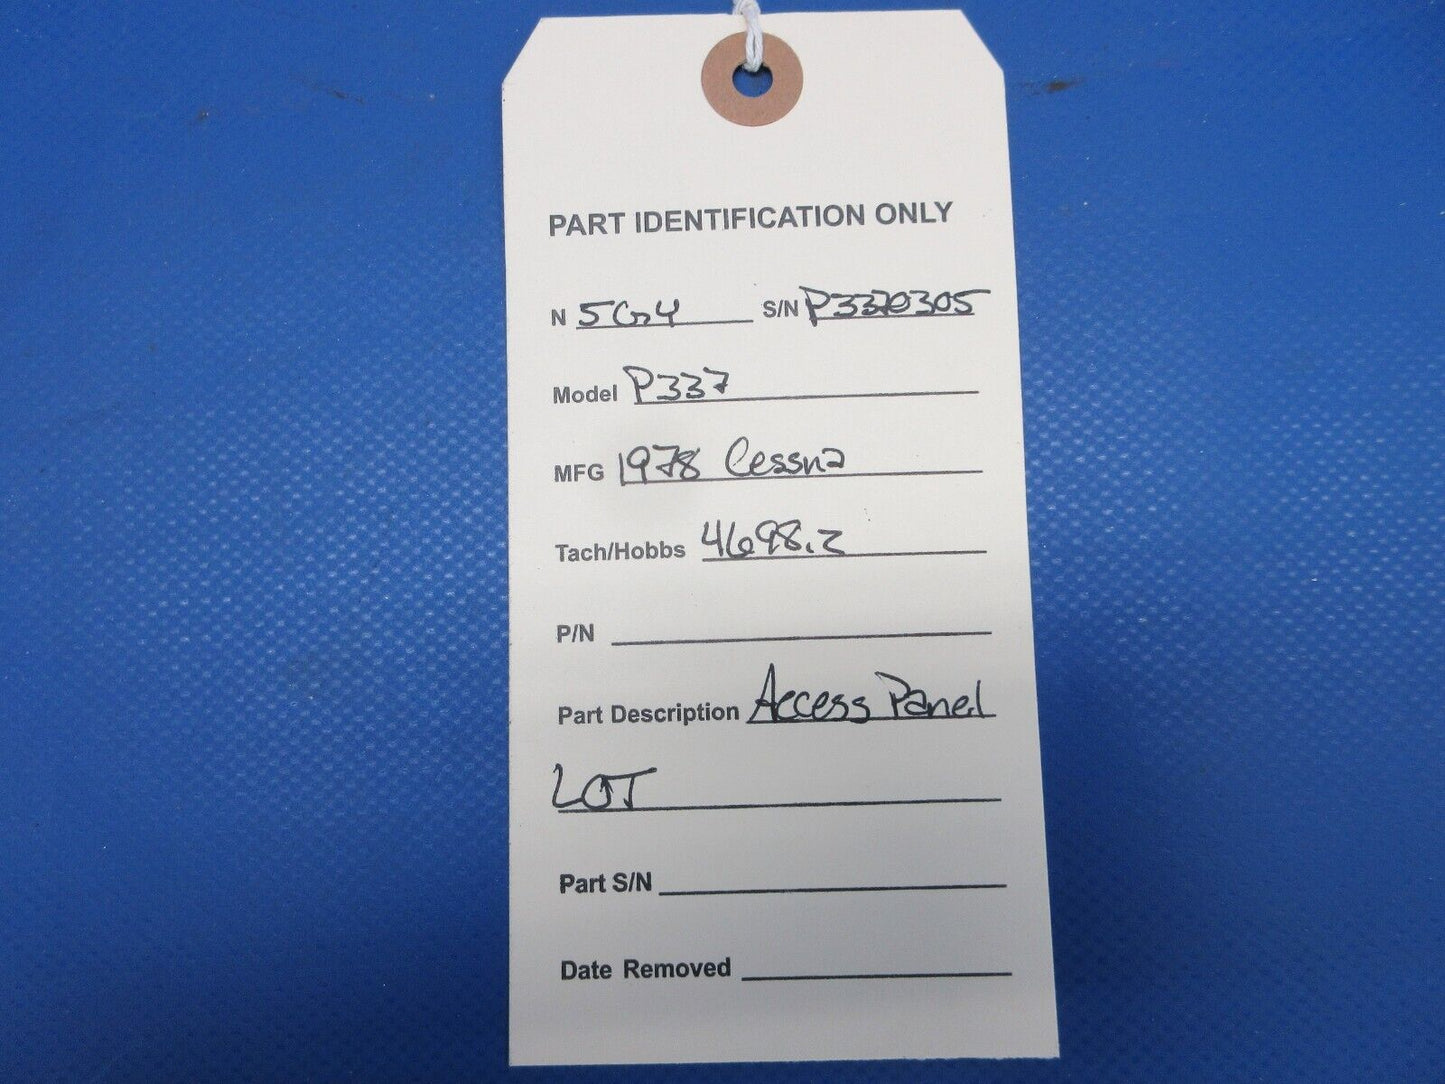 PART IDENTIFICATION ONLY
N 5G4 S/N P3370305
Model P337
MFG 1978 Cessna
Tach/Hobbs 4698.2
P/N
Part Description Access Panel
LOT
Part S/N
Date Removed